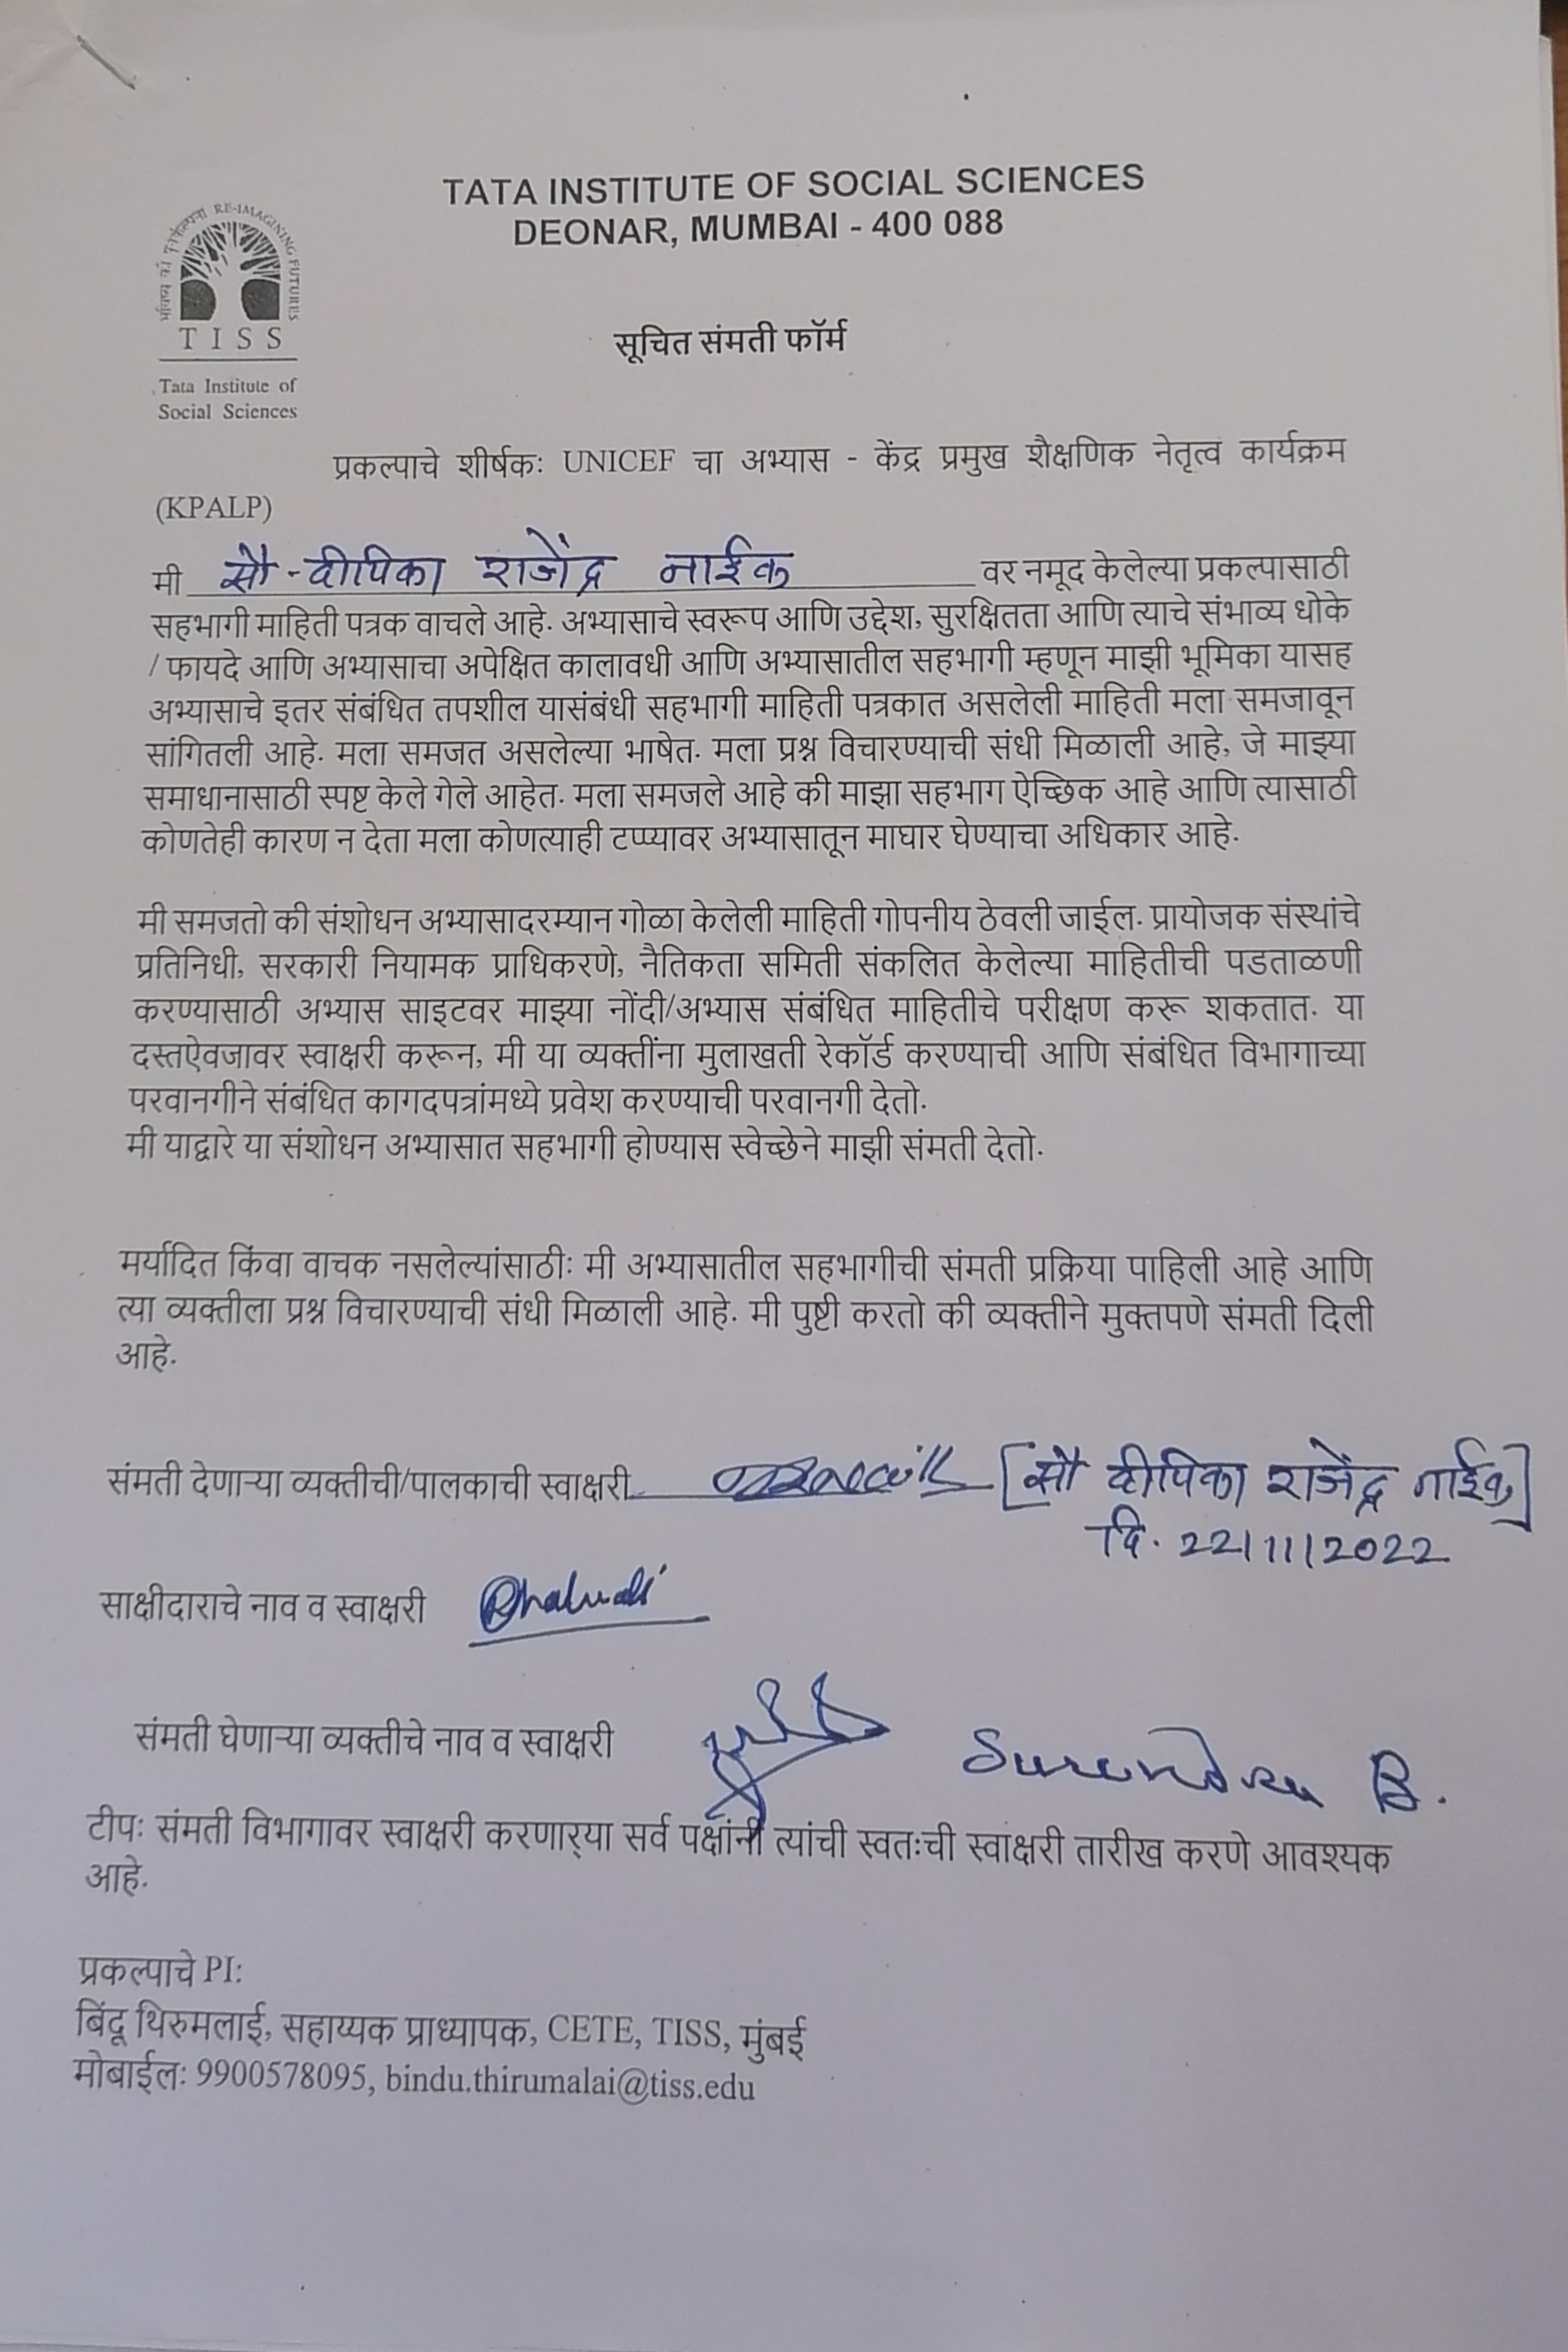 TATA INSTITUTE OF SOCIAL SCIENCES
DEONAR, MUMBAI - 400 088
RE-IMAGINING FUTURES
TISS
Tata Institute of
Social Sciences
सूचित संमती फॉर्म
प्रकल्पाचे शीर्षकः UNICEF चा अभ्यास - केंद्र प्रमुख शैक्षणिक नेतृत्व कार्यक्रम
(KPALP)
मी सौ-दीपिका राजेंद्र नाईक वर नमूद केलेल्या प्रकल्पासाठी
सहभागी माहिती पत्रक वाचले आहे. अभ्यासाचे स्वरूप आणि उद्देश, सुरक्षितता आणि त्याचे संभाव्य धोके
/ फायदे आणि अभ्यासाचा अपेक्षित कालावधी आणि अभ्यासातील सहभागी म्हणून माझी भूमिका यासह
अभ्यासाचे इतर संबंधित तपशील यासंबंधी सहभागी माहिती पत्रकात असलेली माहिती मला समजावून
सांगितली आहे. मला समजत असलेल्या भाषेत. मला प्रश्न विचारण्याची संधी मिळाली आहे, जे माझ्या
समाधानासाठी स्पष्ट केले गेले आहेत. मला समजले आहे की माझा सहभाग ऐच्छिक आहे आणि त्यासाठी
कोणतेही कारण न देता मला कोणत्याही टप्प्यावर अभ्यासातून माघार घेण्याचा अधिकार आहे.
मी समजतो की संशोधन अभ्यासादरम्यान गोळा केलेली माहिती गोपनीय ठेवली जाईल. प्रायोजक संस्थांचे
प्रतिनिधी, सरकारी नियामक प्राधिकरणे, नैतिकता समिती संकलित केलेल्या माहितीची पडताळणी
करण्यासाठी अभ्यास साइटवर माझ्या नोंदी/अभ्यास संबंधित माहितीचे परीक्षण करू शकतात. या
दस्तऐवजावर स्वाक्षरी करून, मी या व्यक्तींना मुलाखती रेकॉर्ड करण्याची आणि संबंधित विभागाच्या
परवानगीने संबंधित कागदपत्रांमध्ये प्रवेश करण्याची परवानगी देतो.
मी याद्वारे या संशोधन अभ्यासात सहभागी होण्यास स्वेच्छेने माझी संमती देतो.
मर्यादित किंवा वाचक नसलेल्यांसाठीः मी अभ्यासातील सहभागीची संमती प्रक्रिया पाहिली आहे आणि
त्या व्यक्तीला प्रश्न विचारण्याची संधी मिळाली आहे. मी पुष्टी करतो की व्यक्तीने मुक्तपणे संमती दिली
आहे.
संमती देणाऱ्या व्यक्तीची/पालकाची स्वाक्षरी [सौ दीपिका राजेंद्र नाईक]
दि. 22/11/2022
साक्षीदाराचे नाव व स्वाक्षरी
संमती घेणाऱ्या व्यक्तीचे नाव व स्वाक्षरी Surendra B.
टीपः संमती विभागावर स्वाक्षरी करणार्‍या सर्व पक्षांनी त्यांची स्वतःची स्वाक्षरी तारीख करणे आवश्यक
आहे.
प्रकल्पाचे PI:
बिंदू थिरुमलाई, सहाय्यक प्राध्यापक, CETE, TISS, मुंबई
मोबाईलः 9900578095, bindu.thirumalai@tiss.edu